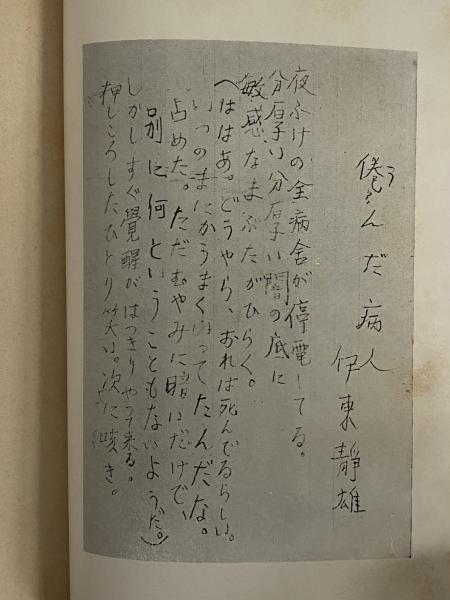 倦んだ病人
う
伊東靜雄
夜ふけの全病舍が停電してる。
分厚い分厚い闇の底に
敏感なまぶたがひらく。
(ははあ。どうやら、おれは死んでるらしい。
いつのまにかうまくいつてたんだな。
占めた。ただむやみに暗いだけで、
別に何ということもないようだ。)
しかしすぐ覺醒がはつきりやつて来る。
押しころしたひとり笑い。次に咳き。